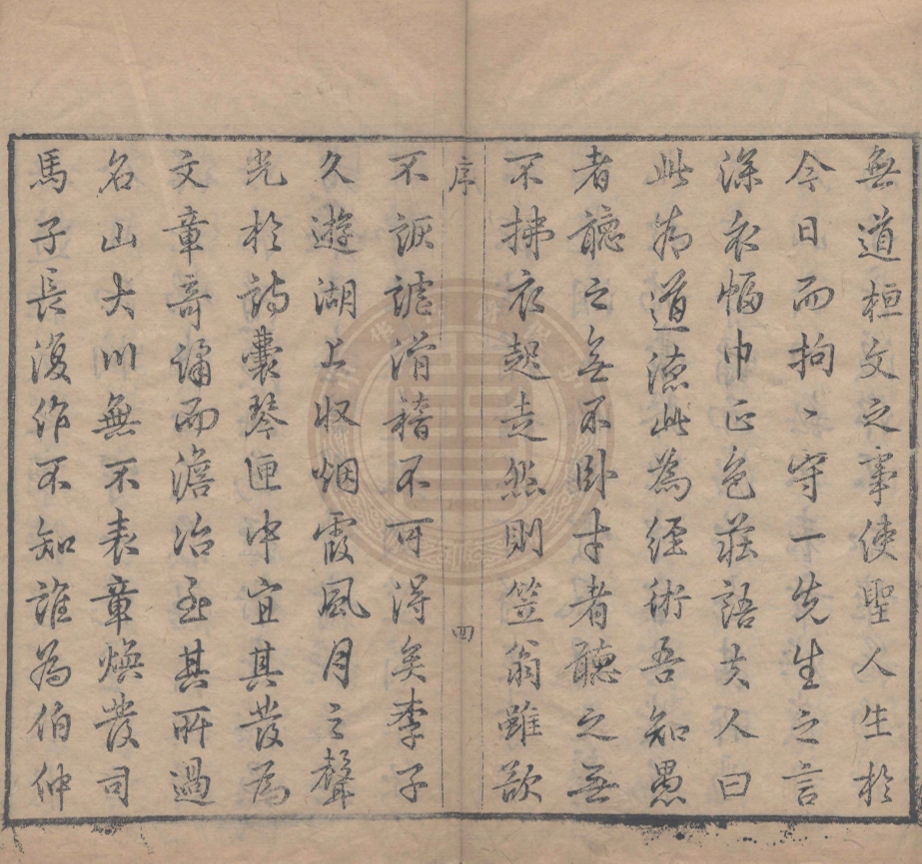 無道桓文之事使聖人生於
今日而拘〻守一先生之言
深衣幅巾正色莊語夫人曰
此為道德此為經術吾知愚
者聽之無不卧才者聽之無
不拂衣起走然則笠翁雖欲
序
四
不詼謔滑稽不可得矣李子
久遊湖上收烟霞風月之聲
光於詩囊琴匣中宜其發為
文章奇譎而澹冶至其所過
名山大川無不表章煥發司
馬子長復作不知誰為伯仲